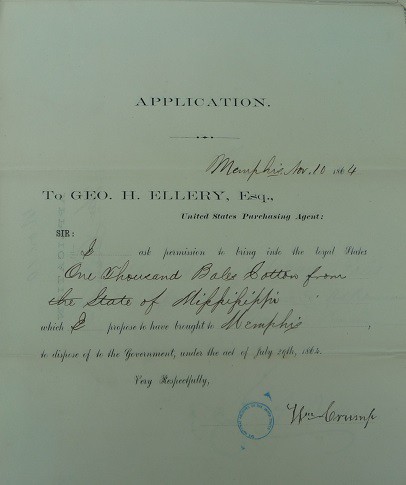 APPLICATION.
Memphis Nov. 10 1864
To GEO. H. ELLERY, Esq.,
United States Purchasing Agent:
SIR:
I ask permission to bring into the legal States
One Thousand Bales Cotton from
the State of Mississippi
which I propose to have brought to Memphis,
to dispose of to the Government, under the act of July 29th, 1864.
Very Respectfully,
Wm Crump